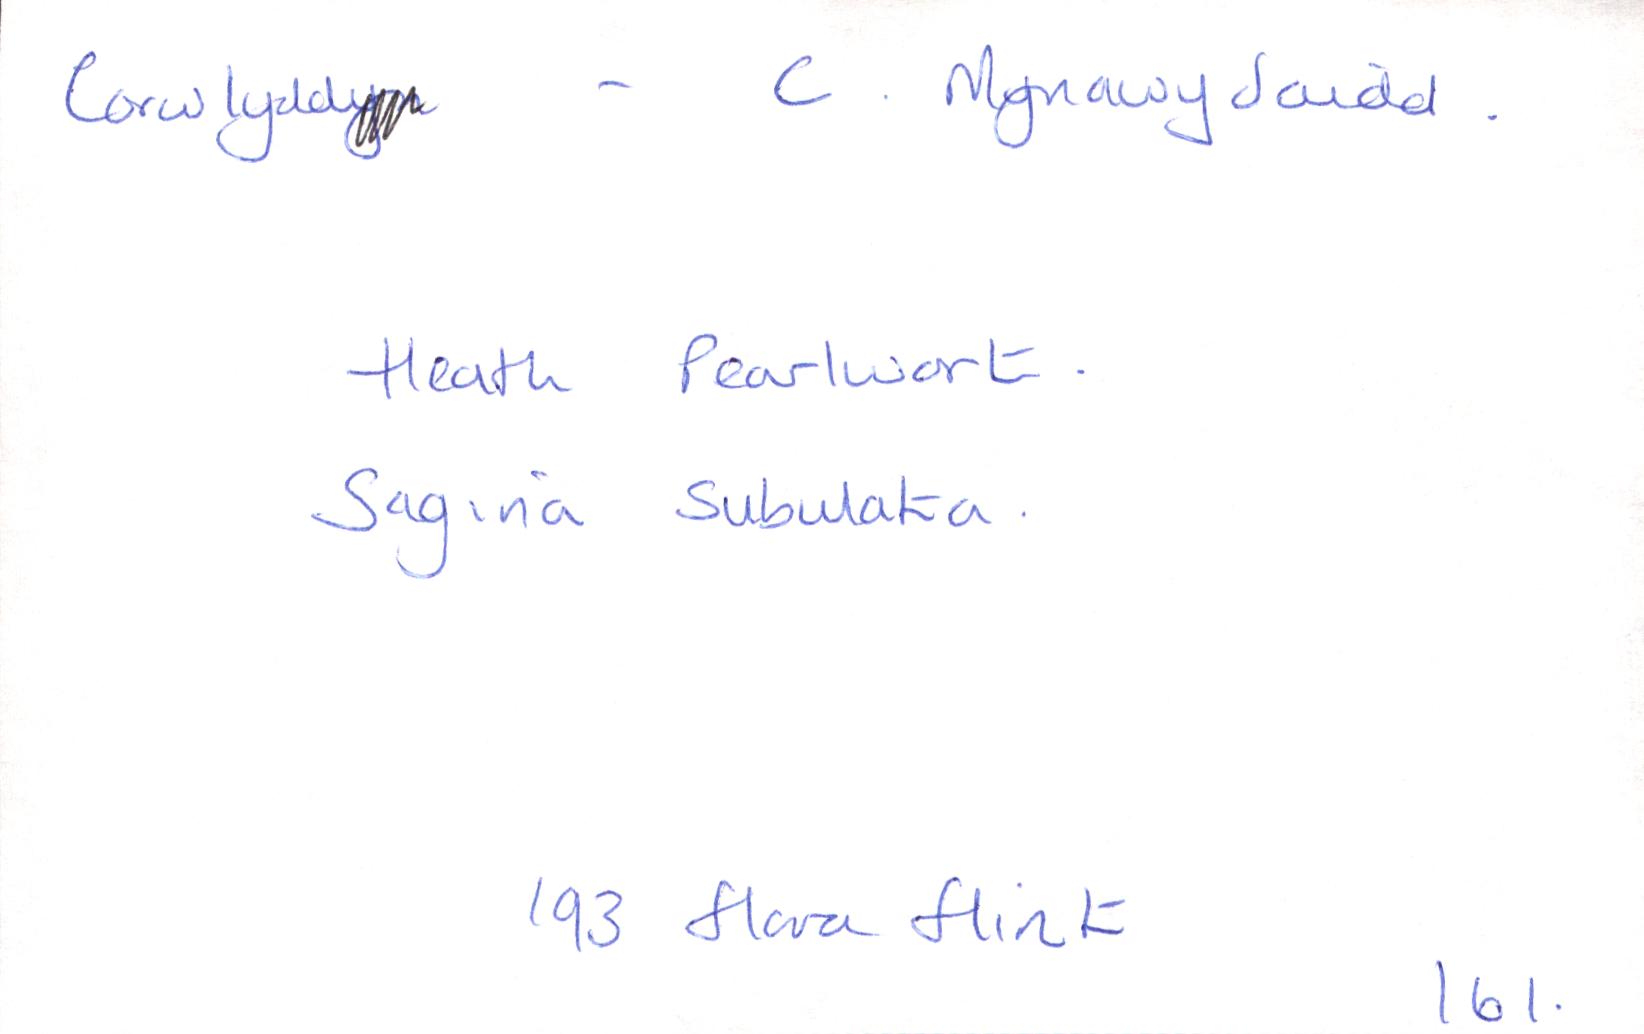 Corwlyddyn - C. Mynawydaidd.
Heath Pearlwort.
Sagina Subulata.
193 flora flint
161.